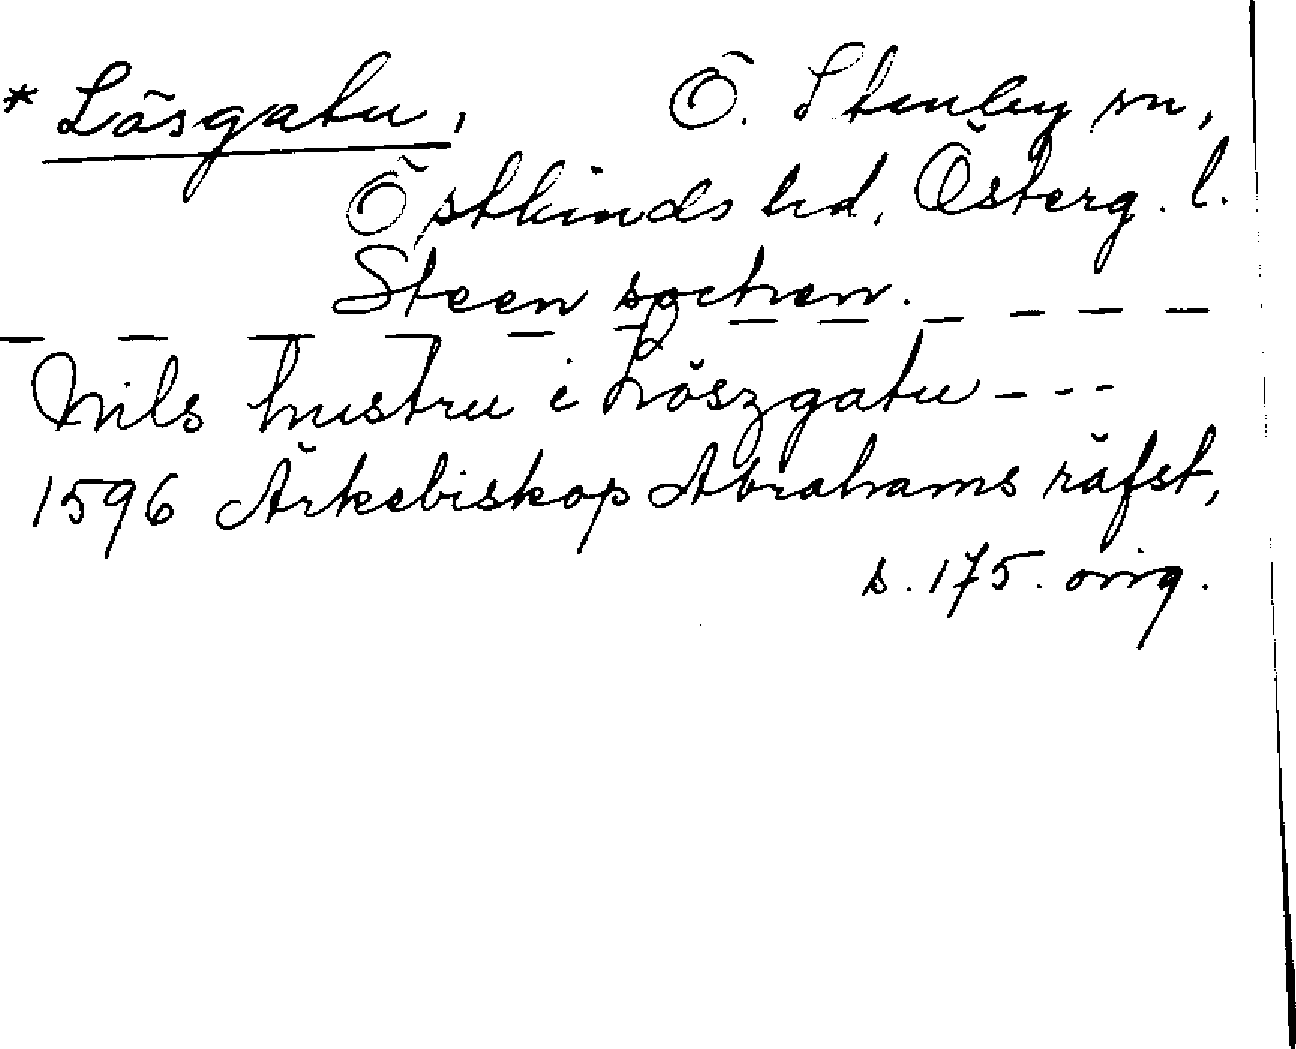 * Lösgatu, Ö. Stenby sn,
Östkinds hd, Österg. l.
Steen sochen.
Nils hustru i Löszgatu - - -
1596 Ärkebiskop Abrahams räfst,
s. 175. orig.